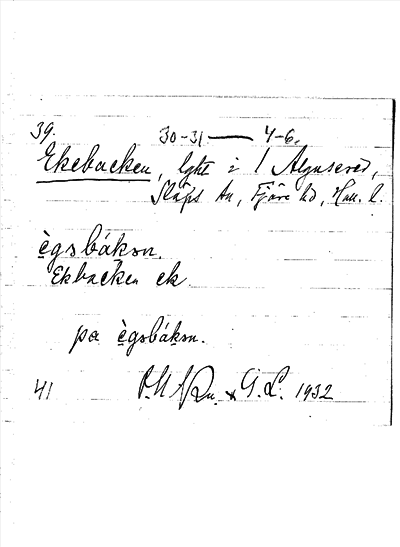 39. 30-31 — 4-6.
Ekebacken, lght i 1 Algusered,
Släps sn, Fjäre hd, Hall. l.
ègsbáksn.
Ekbacken ek
pa ègsbáksn.
41 & G. L. 1932